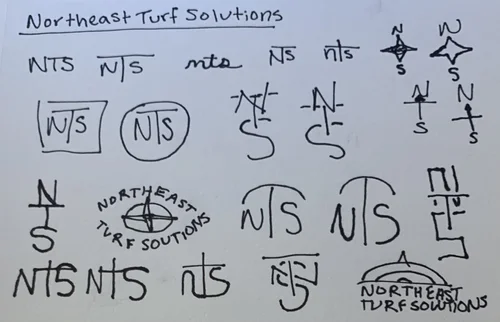 Northeast Turf Solutions
NTS NTS nts NTS nts N N
S S
NTS NTS NTS NTS N N
S S
NTS NORTHEAST NTS NTS NTS
TURF SOUTIONS
NTS NTS NTS NTS NORTHEAST
TURF SOLUTIONS